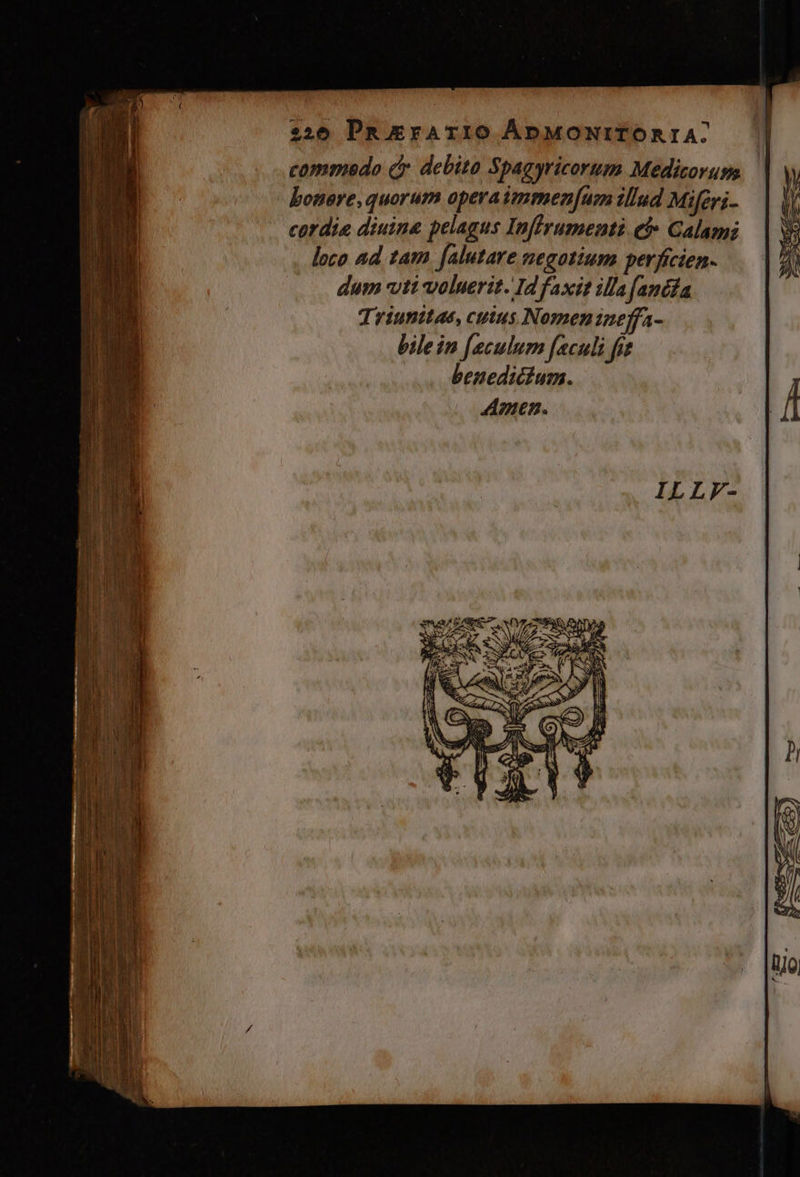 220 PRÆFATIO ADMONITORIA.
commodo & debito Spagyricorum Medicorum
honore, quorum opera immenſum illud Miſeri-
cordiæ diuinæ pelagus Inſtrumenti & Calami
loco ad tam ſalutare negotium perficien-
dum vti voluerit. Id faxit illa ſancta
Triunitas, cuius Nomen ineffa-
bile in ſæculum ſæculi ſit
benedictum.
Amen.
ILLV-